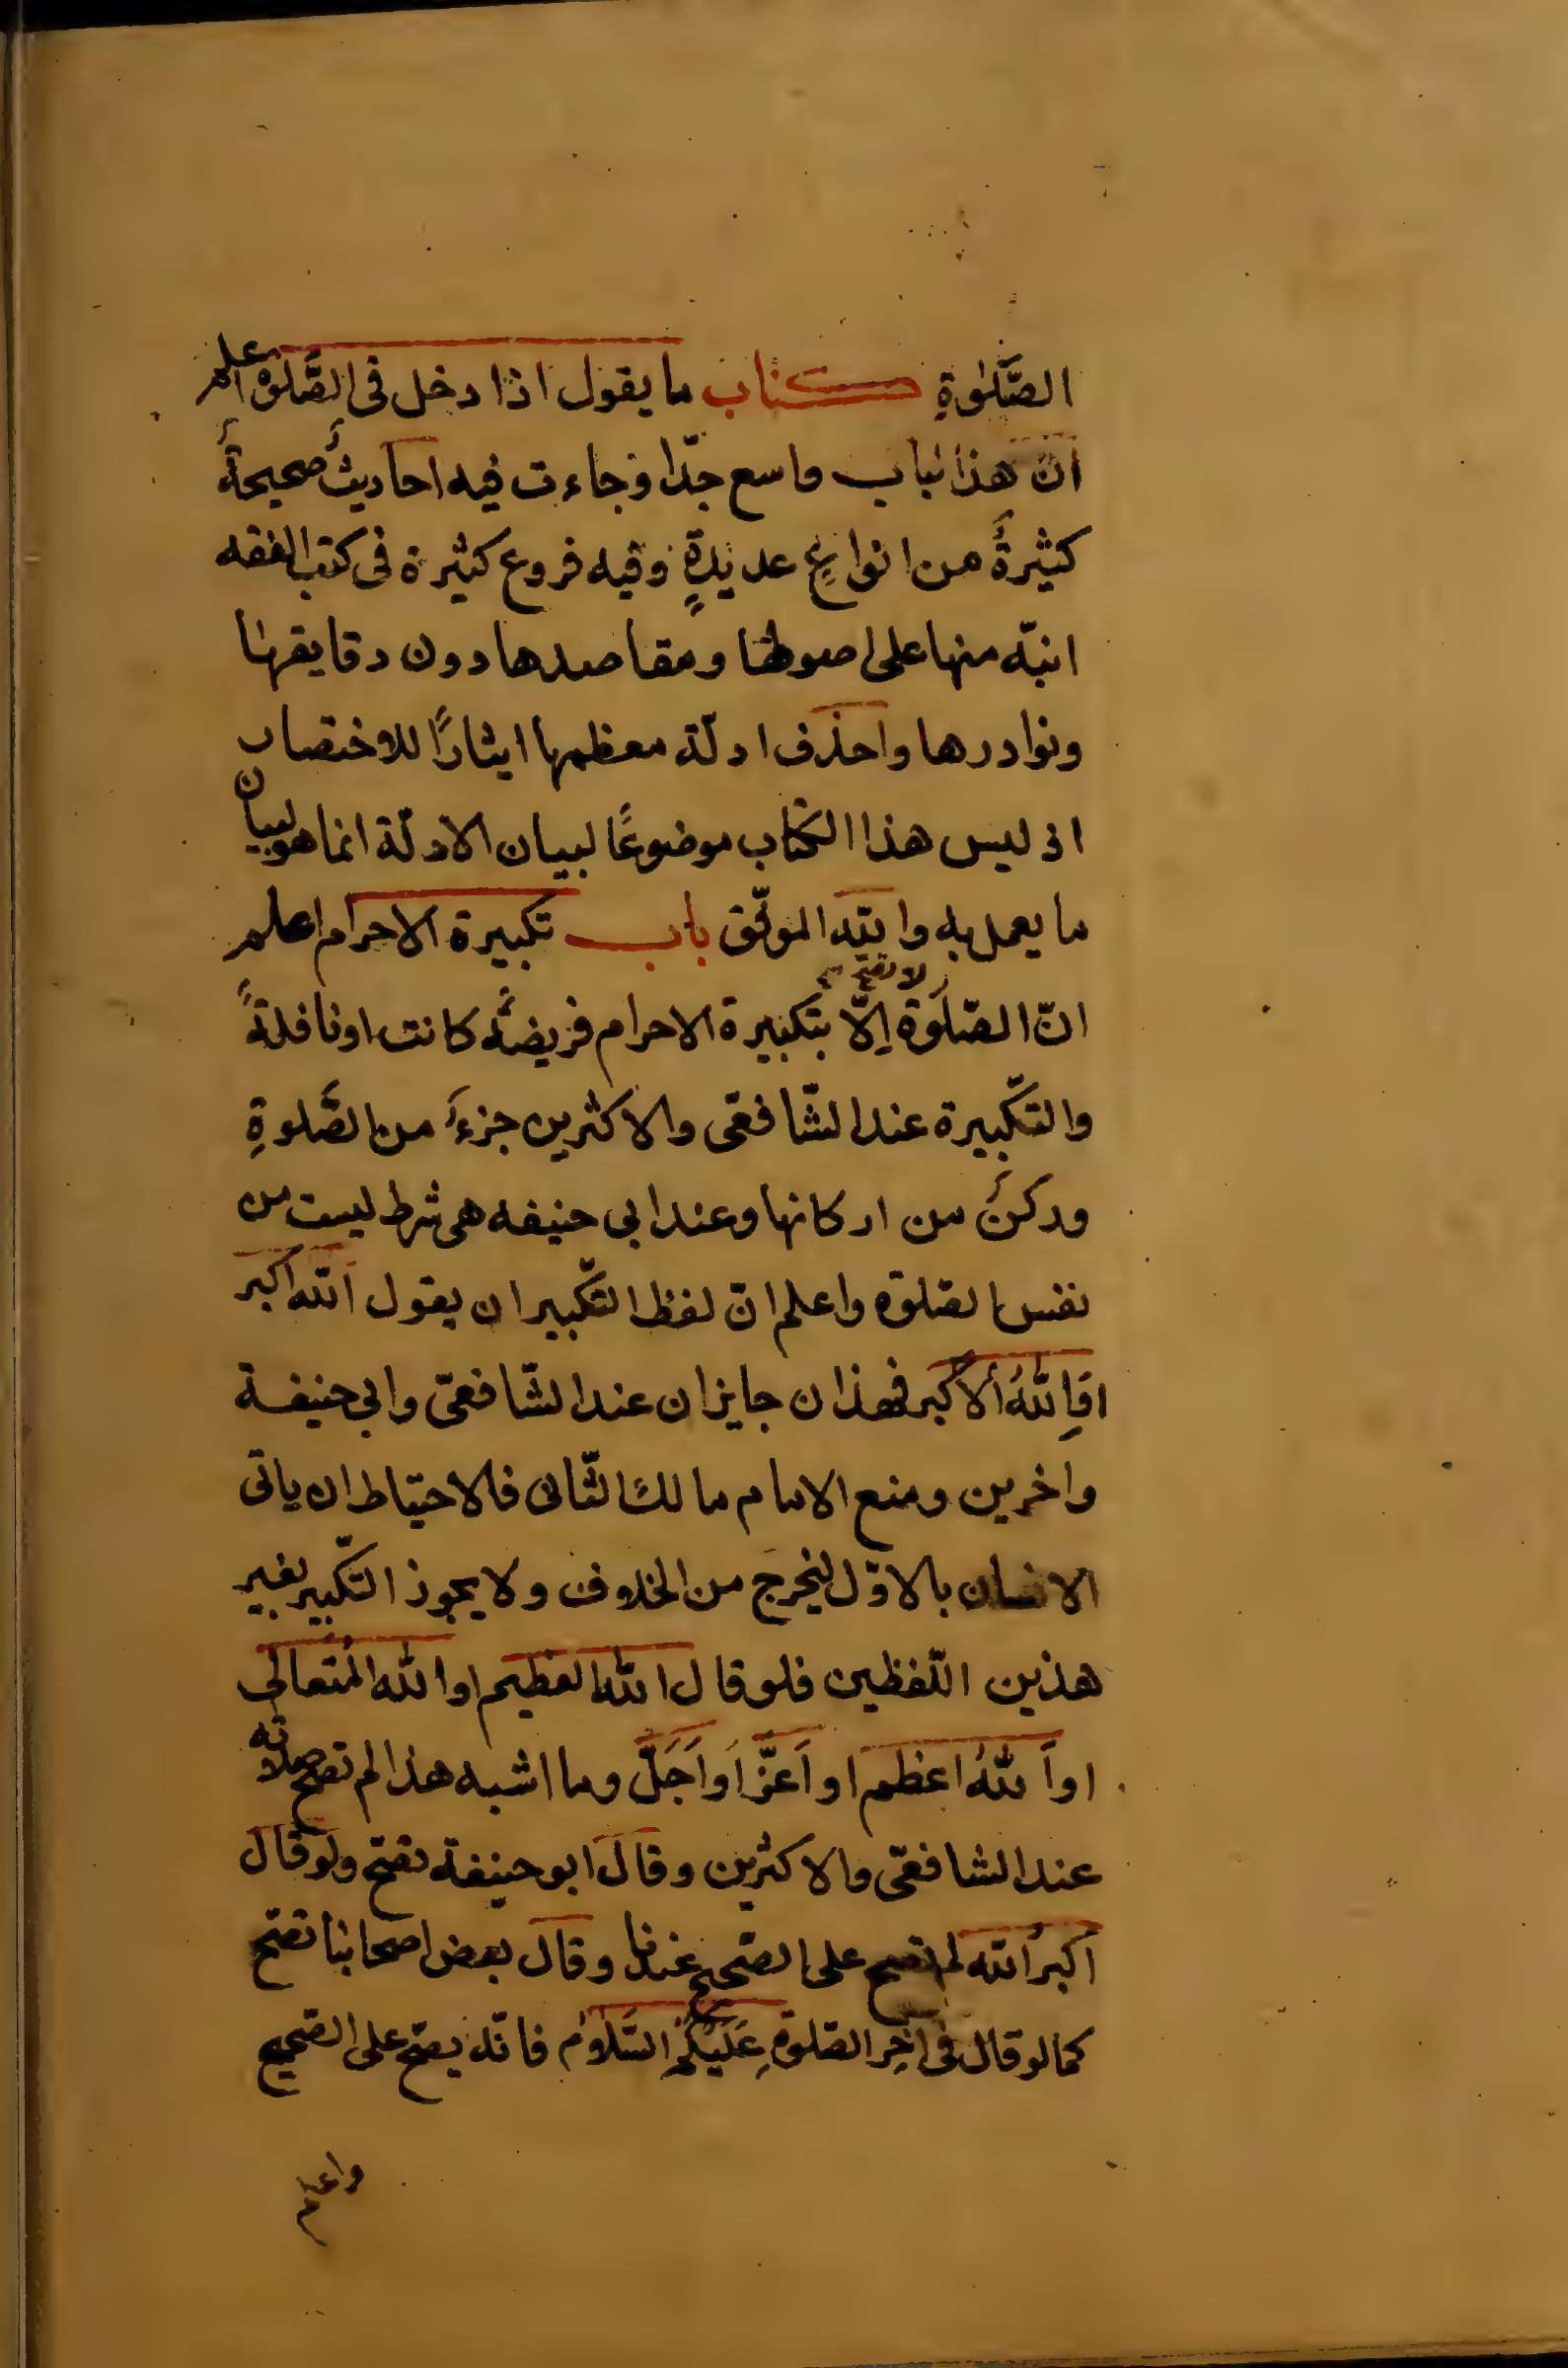 الصَّلوٰةِ كتاب ما يقول اذا دخل فى الصَّلوٰة اعلم
انّ هذا الباب واسع جدّا وجاءت فيه احاديثٌ صحيحةٌ
كثيرةٌ من انواعٍ عديدةٍ وفيه فروع كثيرة فى كتب الفقه
انبّه منها على اصولها ومقاصدها دون دقايقها
ونوادرها واحذف ادلّة معظمها ايثارًا للاختصار
اذ ليس هذا الكتاب موضوعًا لبيان الادلّة انما هو لبيان
ما يعمل به والله الموفّق باب تكبيرة الاحرام اعلم
انّ الصّلوٰة لا تصح اِلّا بتكبيرة الاحرام فريضةً كانت او نافلةً
والتكّبيرة عند الشّافعى والاكثرين جزءٌ من الصَّلوةِ
وركنٌ من اركانها وعند ابى حنيفه هى شرط ليست من
نفس الصلوة واعلم انّ لفظ التّكبير ان يقول اَلله اكبر
اوِ اللهُ اَلاكبر فهذان جايزان عند الشّافعىّ وابى حنيفة
واخرين ومنع الامام مالك الثّانى فالاحتياط ان ياتى
الانسان بالاوّل ليخرجَ من الخلاف ولا يجوز التّكبير بغير
هذين اللّفظين فلو قال الله العظيم او الله المُتَعالى
او اَللهُ اعظم او اَعَزّ اَو اَجَلّ وما اشبه هذا لم تصح صلاته
عند الشافعىّ والاكثرين وقال ابو حنيفة تصح ولو قال
اكبر الله لم تصح على الصّحيح عندنا وقال بعض اصحابنا تصح
كما لو قال فى اٰخِر الصّلوةِ عَلَيْكُمُ السَّلاٰم فانّه يصحّ على الصّحيح
واعلم